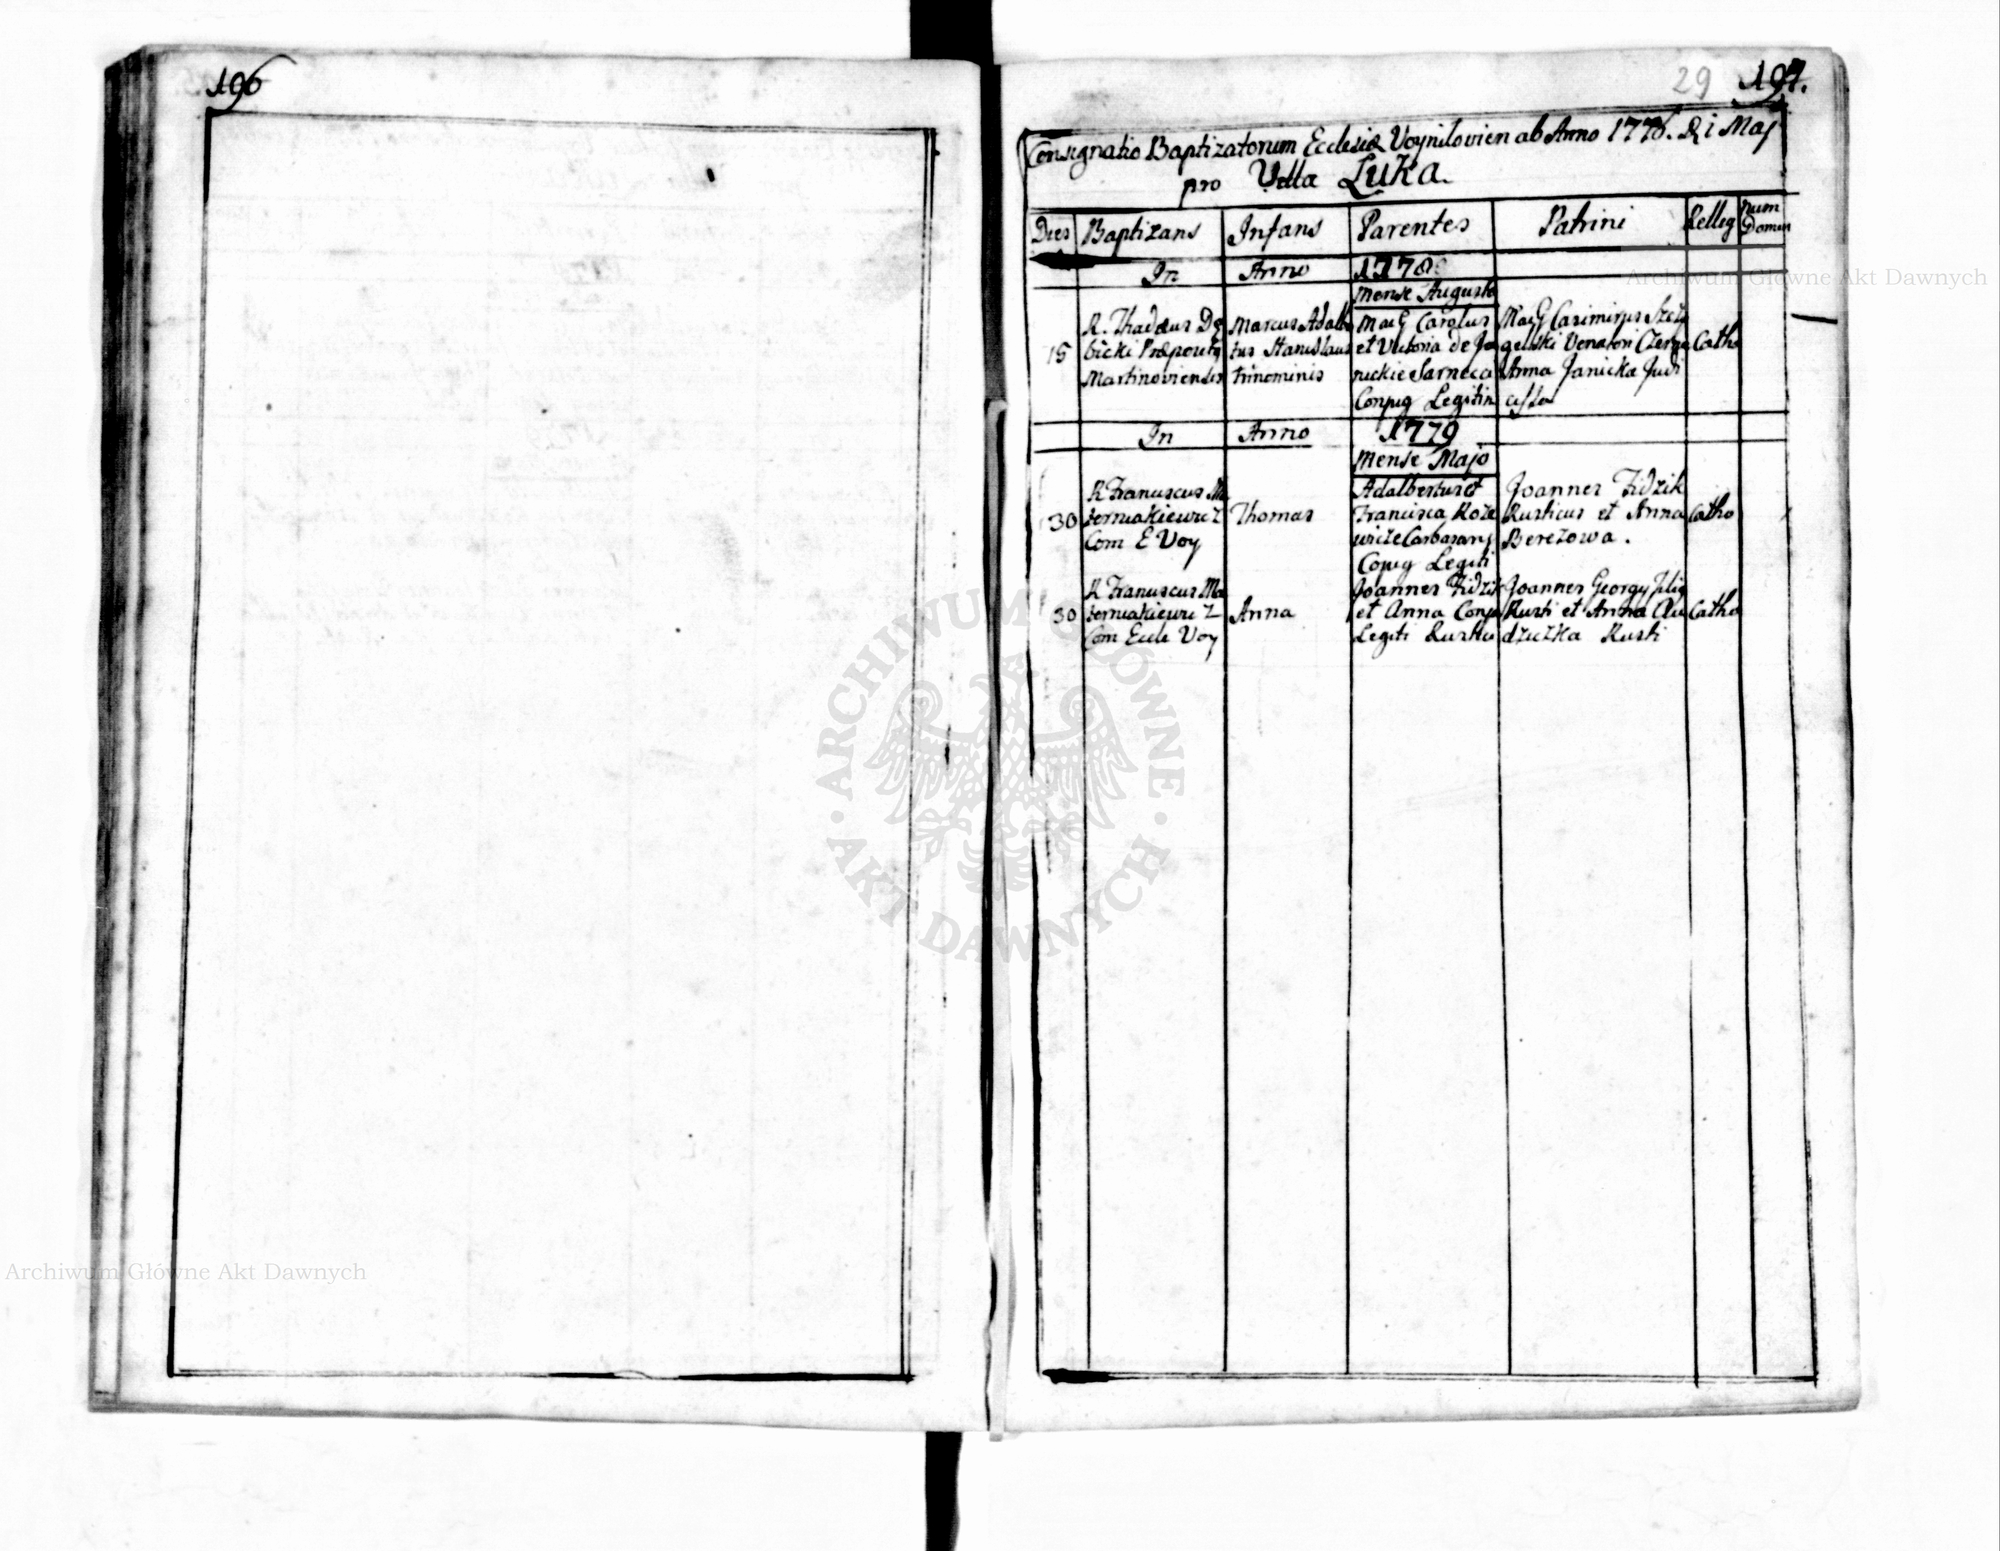 196
29 197.
Consignatio Baptizatorum Ecclesiæ Voynilovien ab Anno 1776. D 1 Maj
pro Villa Łuka.
Dies Baptizans Infans Parentes Patrini Relleg Num Domus
In Anno 1778
Mense Augusto
15
R. Thadæus Dę
bicki Præposit
Martinoviensis
Marcus Adalber
tus Stanislaus
trinominis
MagG Carolus
et Victoria de Ja
nickie Sarnecа
Conjug Legitim
MagG Casimirus
Venatori
Anna Janicka Judi
cissa
Catho
In Anno 1779
Mense Majo
30
R Franciscus Ma
terniakiewicz
Com E Voy
Thomas
Adalbertus et
Francisca
Conjug Legiti
Joannes Fidzik
Rusticus et Anna
Bereżowa.
Catho
30
R Franciscus Ma
terniakiewicz
Com Eccle Voy
Anna
Joannes Fidzik
et Anna Conju
Legiti Rustici
Joannes Georgy
Rusti et Anna
Rusti
Catho
Archiwum Główne Akt Dawnych
ARCHIWUM GŁÓWNE
AKT DAWNYCH
Archiwum Główne Akt Dawnych